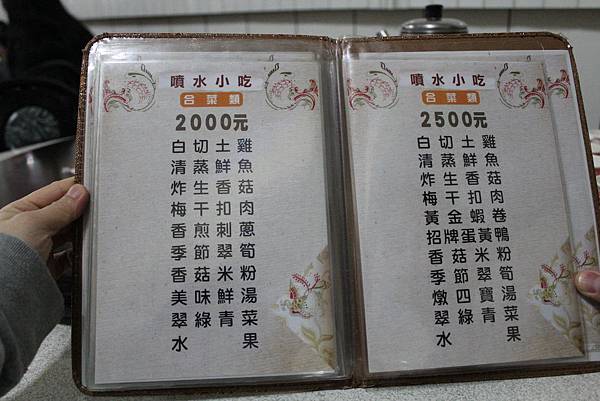 噴水小吃
合菜類
2000元
白切土雞
清蒸鮮魚
炸生香菇
梅干扣肉
香煎刺蔥
季節翠筍
香菇米粉
美味鮮湯
翠綠青菜
水果
噴水小吃
合菜類
2500元
白切土雞
清蒸鮮魚
炸生香菇
梅干扣肉
黃金蝦卷
招牌蛋黃鴨
香菇米粉
季節翠筍
燉四寶湯
翠綠青菜
水果